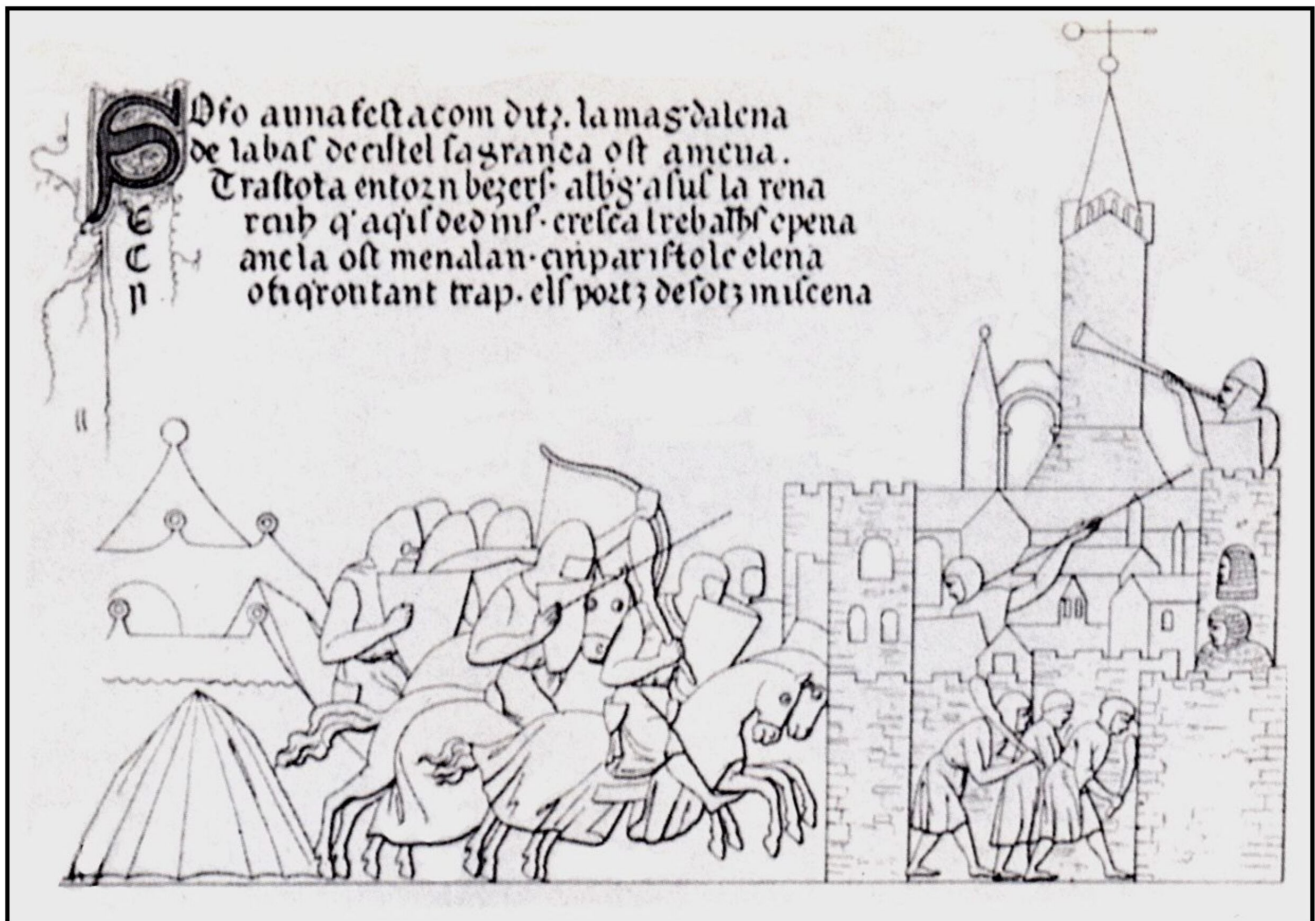 SO fo a una festa com ditz. la mag'dalena
de l abas de cistel sa granƈa ost amena.
Trastota entorn bezers. alb'g'a sus la rena
er cub q' aqis dedins. cresca l trebalhs e pena
E anc la ost menalau. cui paris tole elena
C o fiq'ron tant trap. els portz desotz miscena
N